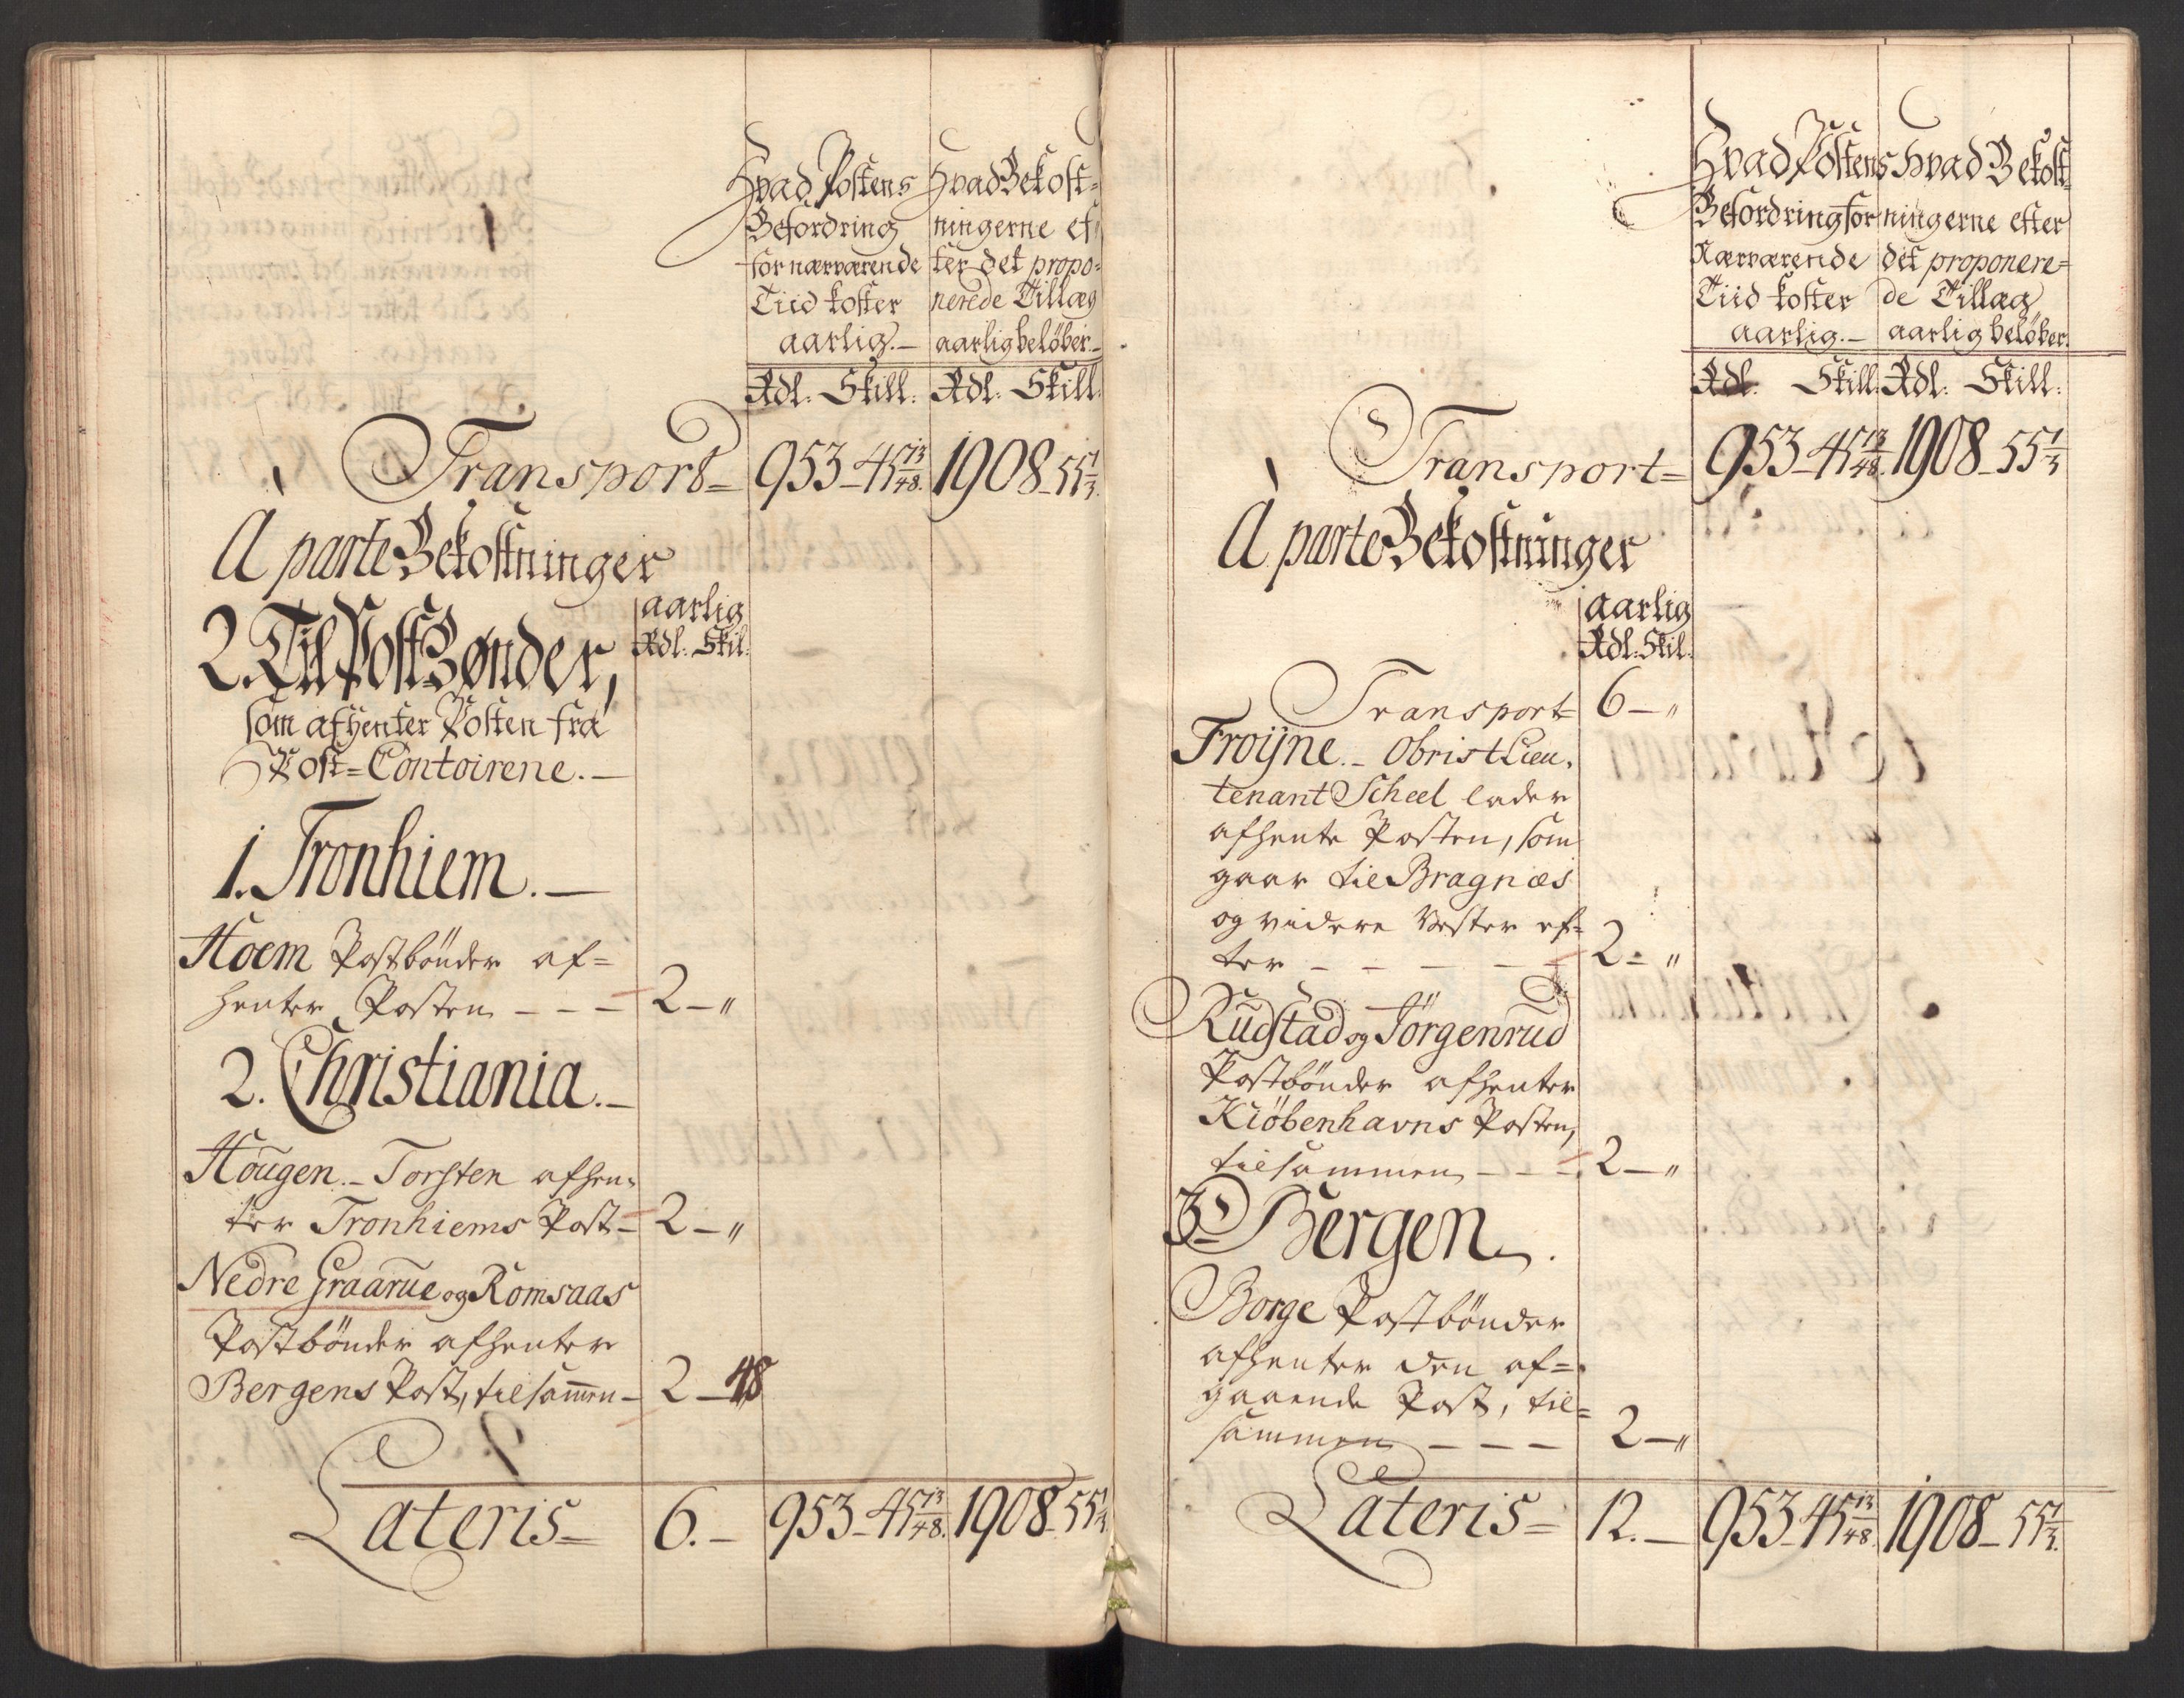 Hvad Postens
Befordring
for nærværende
Tiid koster
aarlig.-
Hvad Bekost=
ningerne ef=
ter det propo=
nerede Tillæg
aarlig beløber.-
Rdl: Skill: Rdl: Skill:
Transport= 953-45 13/48. 1908-55 1/3.
A parte Bekostninger
aarlig
Rdl: Skil:
2. Til Post Bønder,
som afhenter Posten fra
Post=Contoirene.-
1. Tronhiem.-
Hoem Postbönder af=
henter Posten - - - 2-"
2. Christiania.-
Hougen.- Torsten afhen=
ter Tronhiems Post- 2-"
Nedre Graarue og Romsaas
Postbönder afhenter
Bergens Post, tilsammen- 2-48
Lateris= 6.- 953-45 13/48. 1908-55 1/3.
Hvad Postens
Befordring for
Nærværende
Tiid koster
aarlig.-
Hvad Bekost=
ningerne efter
det proponere=
de Tillæg
aarlig beløber.
Rdl. Skill: Rdl: Skill:
Transport= 953-45 13/48. 1908-55 1/3
A parte Bekostninger
aarlig
Rdl: Skil:
Transport= 6-"
Froijne.- Obrist Lieu=
tenant Scheel lader
afhente Posten, som
gaar til Bragnæs
og videre Vester ef=
ter - - - - - 2-"
Rudstad og Jörgenrud
Postbönder afhenter
Kiöbenhavns Posten,
tilsammen - - - 2-"
3. Bergen.
Borge Postbönder
afhenter den af=
gaaende Post, til=
sammen - - - 2-"
Lateris= 12.- 953-45 13/48. 1908-55 1/3.